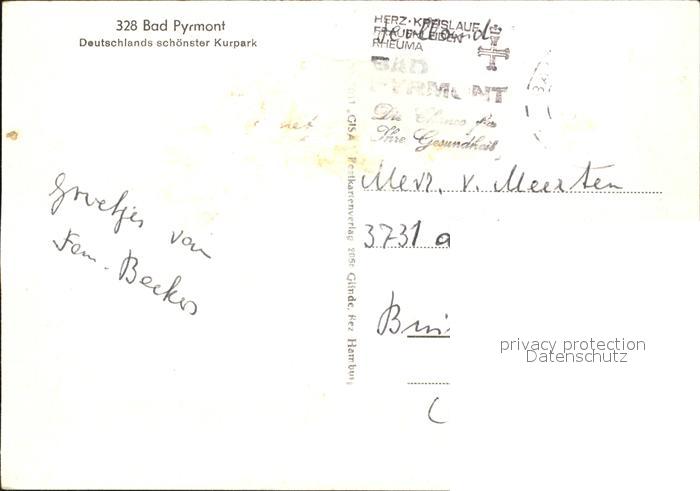 328 Bad Pyrmont
Deutschlands schönster Kurpark
HERZ·KREISLAUF
FRAUENLEIDEN
RHEUMA
BAD
PYRMONT
Die Chance für
Ihre Gesundheit
Groetjes van
Fam. Beekers
"GISA" Postkartenverlag 2056 Glinde, Bez. Hamburg
Mevr. v. Meerten
3731 a
privacy protection
Datenschutz